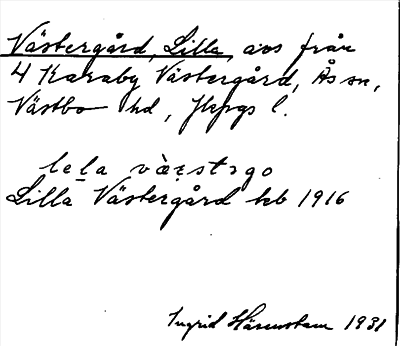 Västergård, Lilla, avs från
4 Karaby Västergård, Ås sn,
Västbo hd, Jkpgs l.
lela væ̀stsgo
Lilla Västergård kb 1916
Ingrid Härenstam 1931